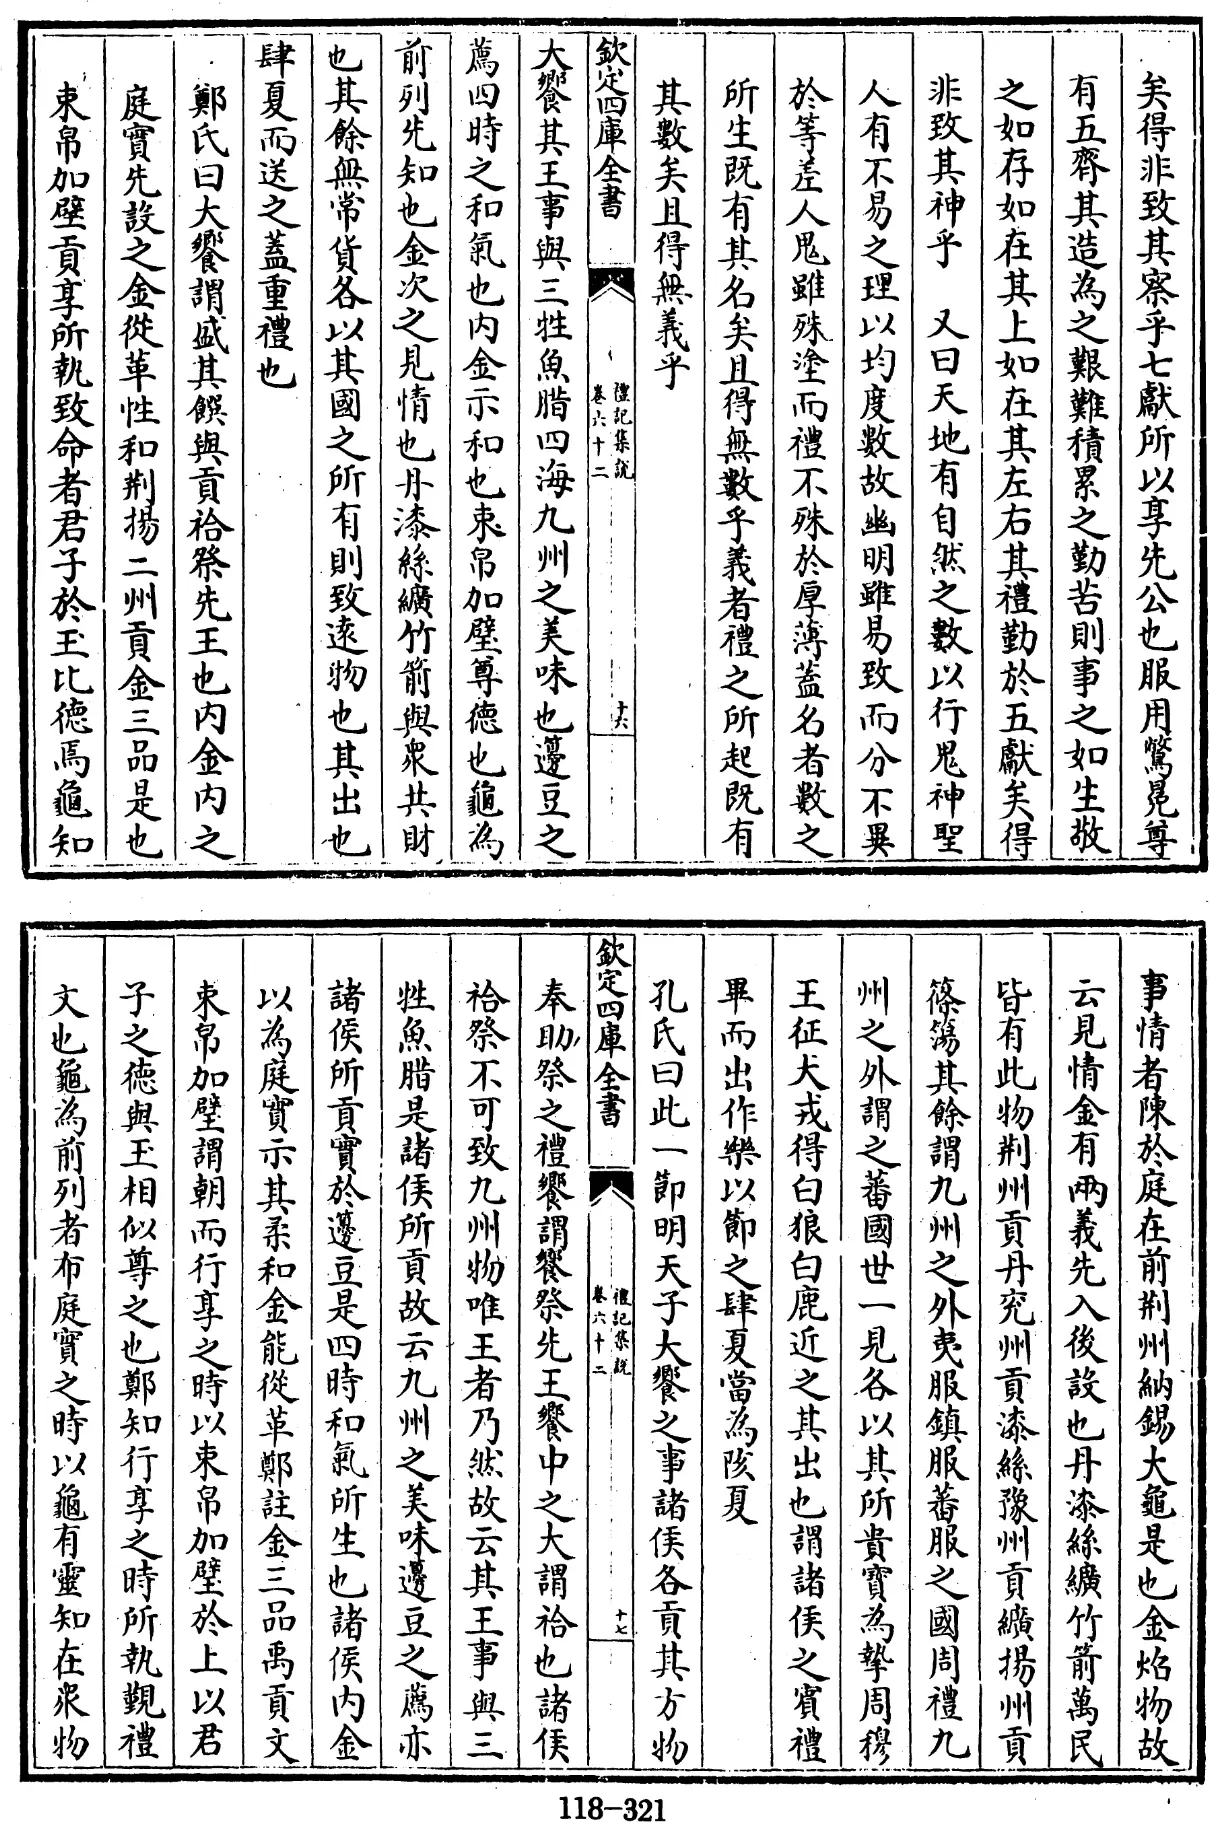 矣得非致其察乎七獻所以享先公也服用鷩冕尊
有五齊其造為之艱難積累之勤苦則事之如生敬
之如存如在其上如在其左右其禮勤於五獻矣得
非致其神乎　又曰天地有自然之數以行鬼神聖
人有不易之理以均度數故幽明雖易致而分不異
於等差人鬼雖殊塗而禮不殊於厚薄蓋名者數之
所生既有其名矣且得無數乎義者禮之所起既有
其數矣且得無義乎
欽定四庫全書
禮記集說
卷六十二
十六
大饗其王事與三牲魚腊四海九州之美味也籩豆之
薦四時之和氣也内金示和也束帛加璧尊德也龜為
前列先知也金次之見情也丹漆絲纊竹箭與衆共財
也其餘無常貨各以其國之所有則致遠物也其出也
肆夏而送之蓋重禮也
鄭氏曰大饗謂盛其饌與貢祫祭先王也内金内之
庭實先設之金從革性和荆揚二州貢金三品是也
束帛加璧貢享所執致命者君子於玉比德焉龜知
事情者陳於庭在前荆州納錫大龜是也金炤物故
云見情金有兩義先入後設也丹漆絲纊竹箭萬民
皆有此物荆州貢丹兖州貢漆絲豫州貢纊揚州貢
篠簜其餘謂九州之外夷服鎮服蕃服之國周禮九
州之外謂之蕃國世一見各以其所貴寳為摯周穆
王征犬戎得白狼白鹿近之其出也謂諸侯之賓禮
畢而出作樂以節之肆夏當為陔夏
孔氏曰此一節明天子大饗之事諸侯各貢其方物
欽定四庫全書
禮記集說
卷六十二
十七
奉助祭之禮饗謂饗祭先王饗中之大謂祫也諸侯
祫祭不可致九州物唯王者乃然故云其王事與三
牲魚腊是諸侯所貢故云九州之美味籩豆之薦亦
諸侯所貢實於籩豆是四時和氣所生也諸侯内金
以為庭實示其柔和金能從革鄭註金三品禹貢文
束帛加璧謂朝而行享之時以束帛加璧於上以君
子之德與玉相似尊之也鄭知行享之時所執覲禮
文也龜為前列者布庭實之時以龜有靈知在衆物
118-321